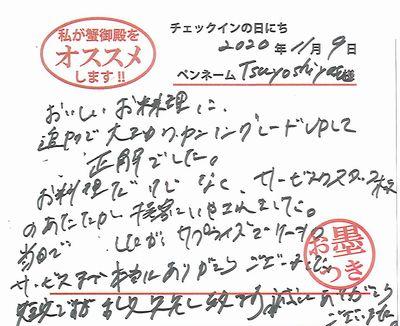 私が蟹御殿を
オススメ
します!!
チェックインの日にち
2020年11月9日
ペンネーム Tsuyoshiyasu様
おいしいお料理に、
追加で ワンランクグレードUPして
正解でした。
お料理だけじゃなく、サービススタッフ様
のあたたかい接客にいやされました。
当日で サプライズでケーキの
サービスまで本当にありがとうございました。
ありがとう
ございました。
お墨
つき